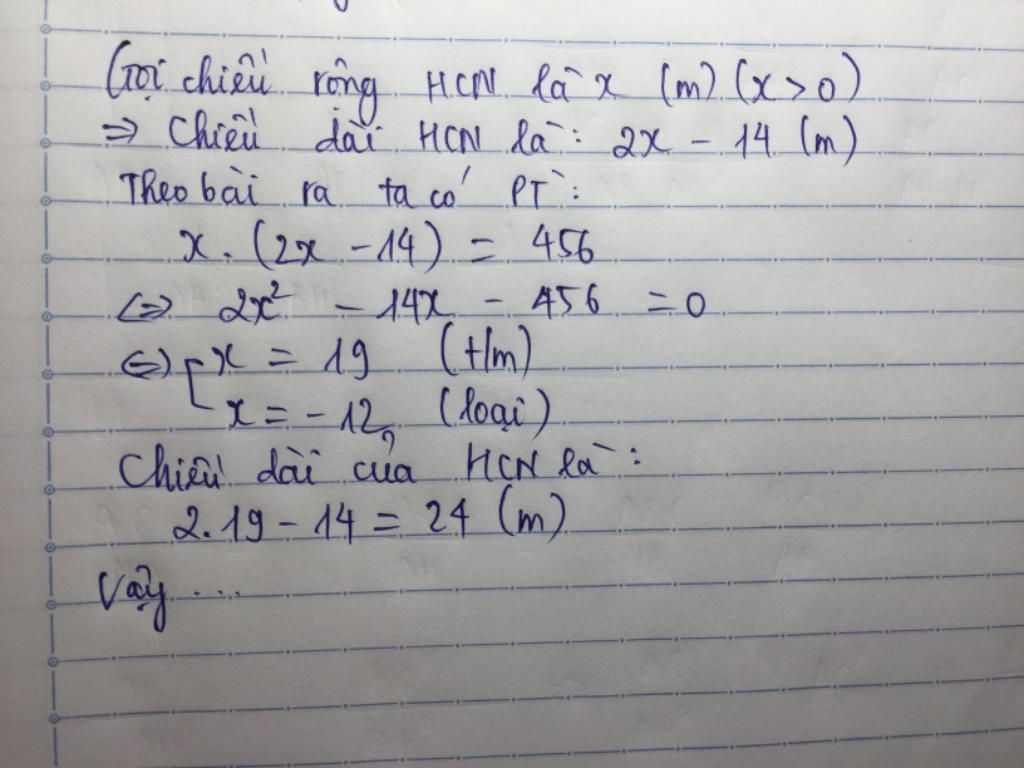 Gọi chiều rộng HCN là x (m) (x > 0)
=> Chiều dài HCN là: 2x - 14 (m)
Theo bài ra ta có PT:
x . (2x - 14) = 456
<=> 2x² - 14x - 456 = 0
<=> [ x = 19 (t/m)
x = -12 (loại)
Chiều dài của HCN là:
2.19 - 14 = 24 (m)
Vậy ...